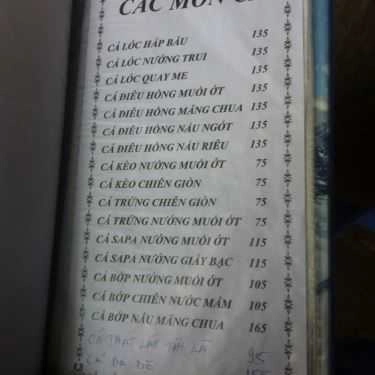 CÁC MÓN C
CÁ LÓC HẤP BẦU 135
CÁ LÓC NƯỚNG TRUI 135
CÁ LÓC QUAY ME 135
CÁ ĐIÊU HỒNG MUỐI ỚT 135
CÁ ĐIÊU HỒNG MĂNG CHUA 135
CÁ ĐIÊU HỒNG NẤU NGÓT 135
CÁ ĐIÊU HỒNG NẤU RIÊU 135
CÁ KÈO NƯỚNG MUỐI ỚT 75
CÁ KÈO CHIÊN GIÒN 75
CÁ TRỨNG CHIÊN GIÒN 75
CÁ TRỨNG NƯỚNG MUỐI ỚT 75
CÁ SAPA NƯỚNG MUỐI ỚT 115
CÁ SAPA NƯỚNG GIẤY BẠC 115
CÁ BỚP NƯỚNG MUỐI ỚT 105
CÁ BỚP CHIÊN NƯỚC MẮM 105
CÁ BỚP NẤU MĂNG CHUA 165
CÁ THÁT LÁT 95
CÁ DA